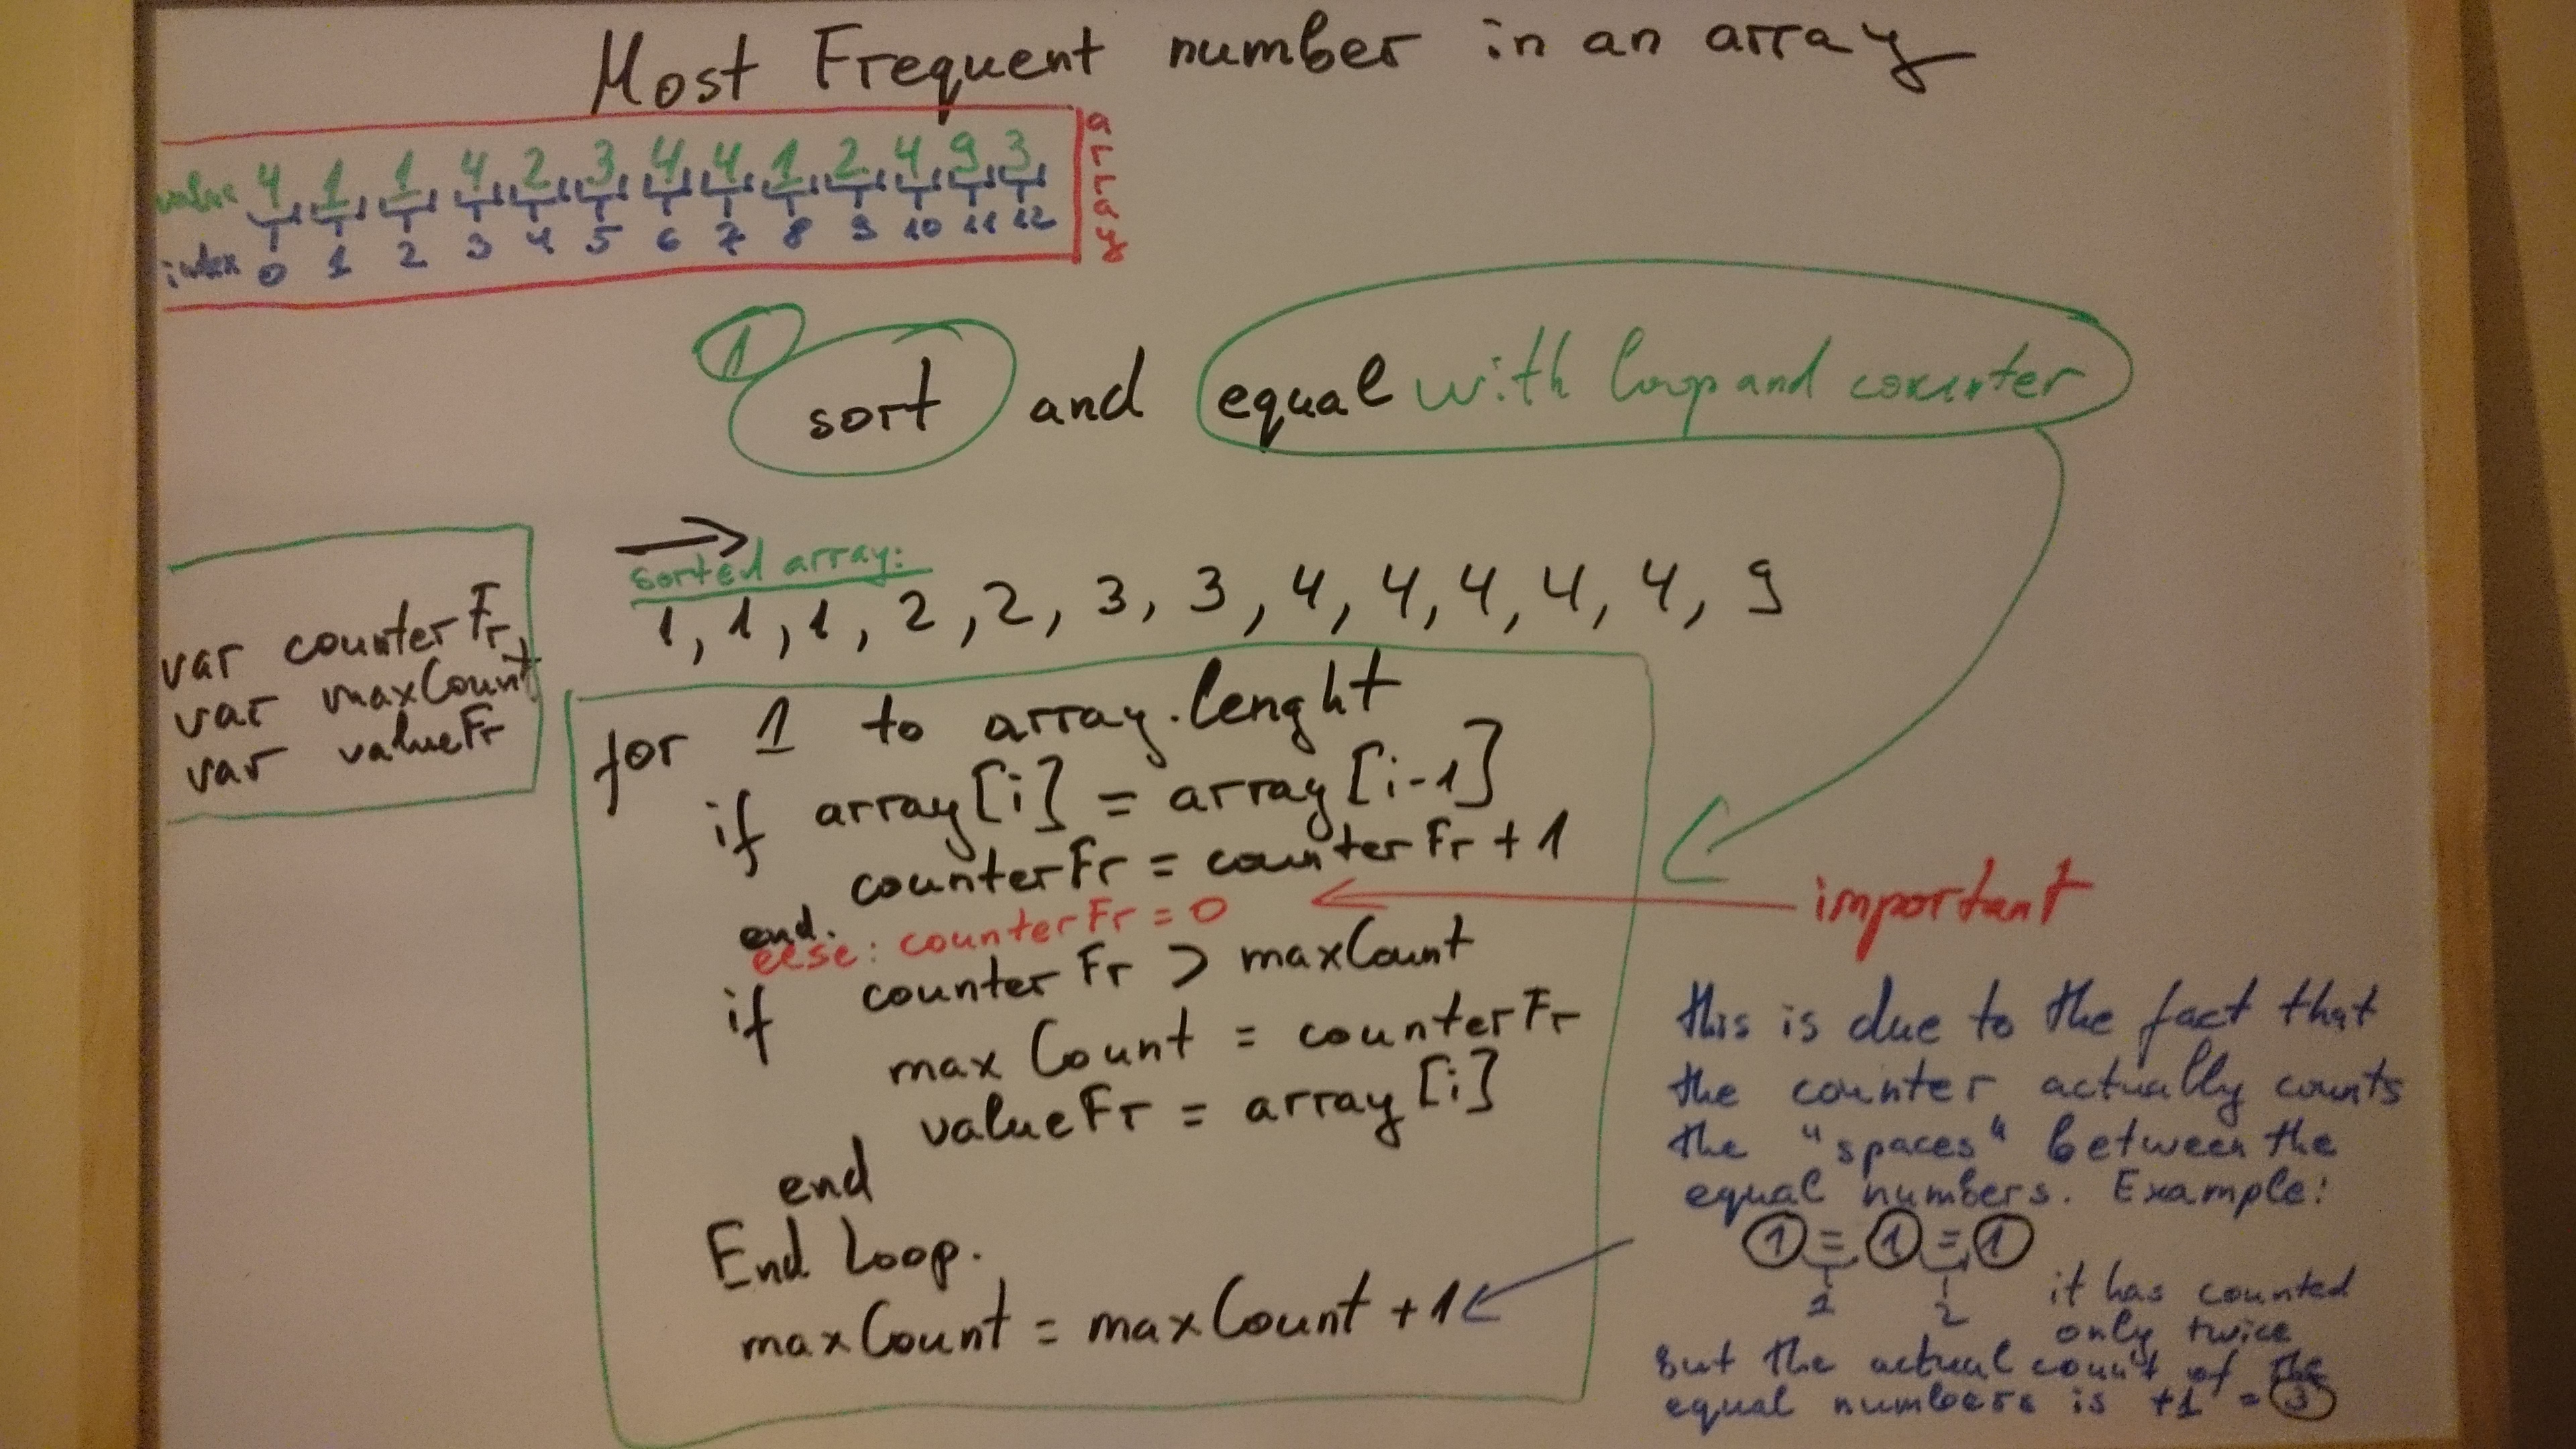 Most Frequent number in an array
value 4 1 1 4 2 3 4 4 1 2 4 9 3
index 0 1 2 3 4 5 6 7 8 9 10 11 12
array
1
sort and equal with loop and counter
sorted array:
1, 1, 1, 2, 2, 3, 3, 4, 4, 4, 4, 4, 9
var counterFr
var maxCount
var valueFr
for 1 to array.lenght
if array[i] = array[i-1]
counterFr = counterFr + 1
end.
else: counterFr = 0
important
if counterFr > maxCount
maxCount = counterFr
valueFr = array[i]
end
End Loop.
maxCount = maxCount + 1
this is due to the fact that
the counter actually counts
the "spaces" between the
equal numbers. Example:
1 = 1 = 1
1 2
it has counted
only twice
But the actual count of the
equal numbers is +1 = 3